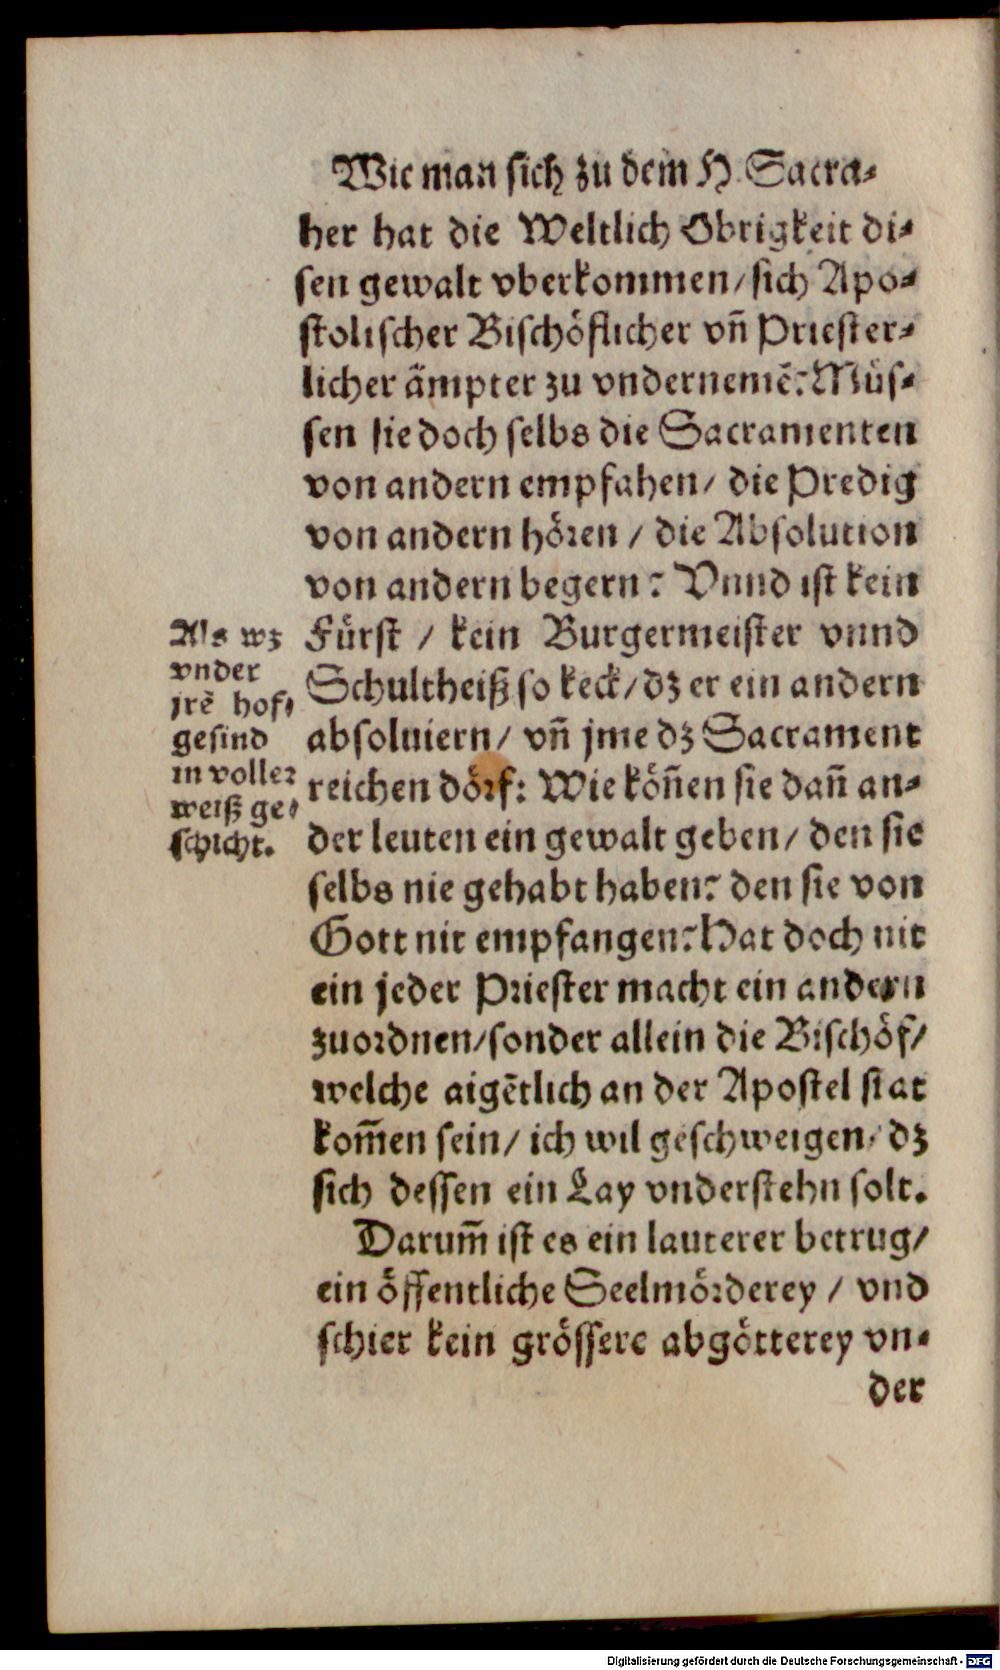 Wie man sich zu dem H. Sacra-
her hat die Weltlich Obrigkeit di-
sen gewalt vberkommen/ sich Apo-
stolischer Bischöflicher vn̄ Priester-
licher ämpter zu vndernemē? Müs-
sen sie doch selbs die Sacramenten
von andern empfahen/ die Predig
von andern hören / die Absolution
von andern begern? Vnnd ist kein
Fürst / kein Burgermeister vnnd
Schultheiß so keck/ dz er ein andern
absoluiern/ vn̄ jme dz Sacrament
reichen dörf: Wie kön̄en sie dan̄ an-
der leuten ein gewalt geben/ den sie
selbs nie gehabt haben? den sie von
Gott nit empfangen? Hat doch nit
ein jeder Priester macht ein andern
zuordnen/ sonder allein die Bischöf/
welche aigētlich an der Apostel stat
kom̄en sein/ ich wil geschweigen/ dz
sich dessen ein Lay vnderstehn solt.
Darum̄ ist es ein lauterer betrug/
ein öffentliche Seelmörderey / vnd
schier kein grössere abgötterey vn-
der
Als wz
vnder
jrē hof-
gesind
in voller
weiß ge-
schicht.
Digitalisierung gefördert durch die Deutsche Forschungsgemeinschaft - DFG